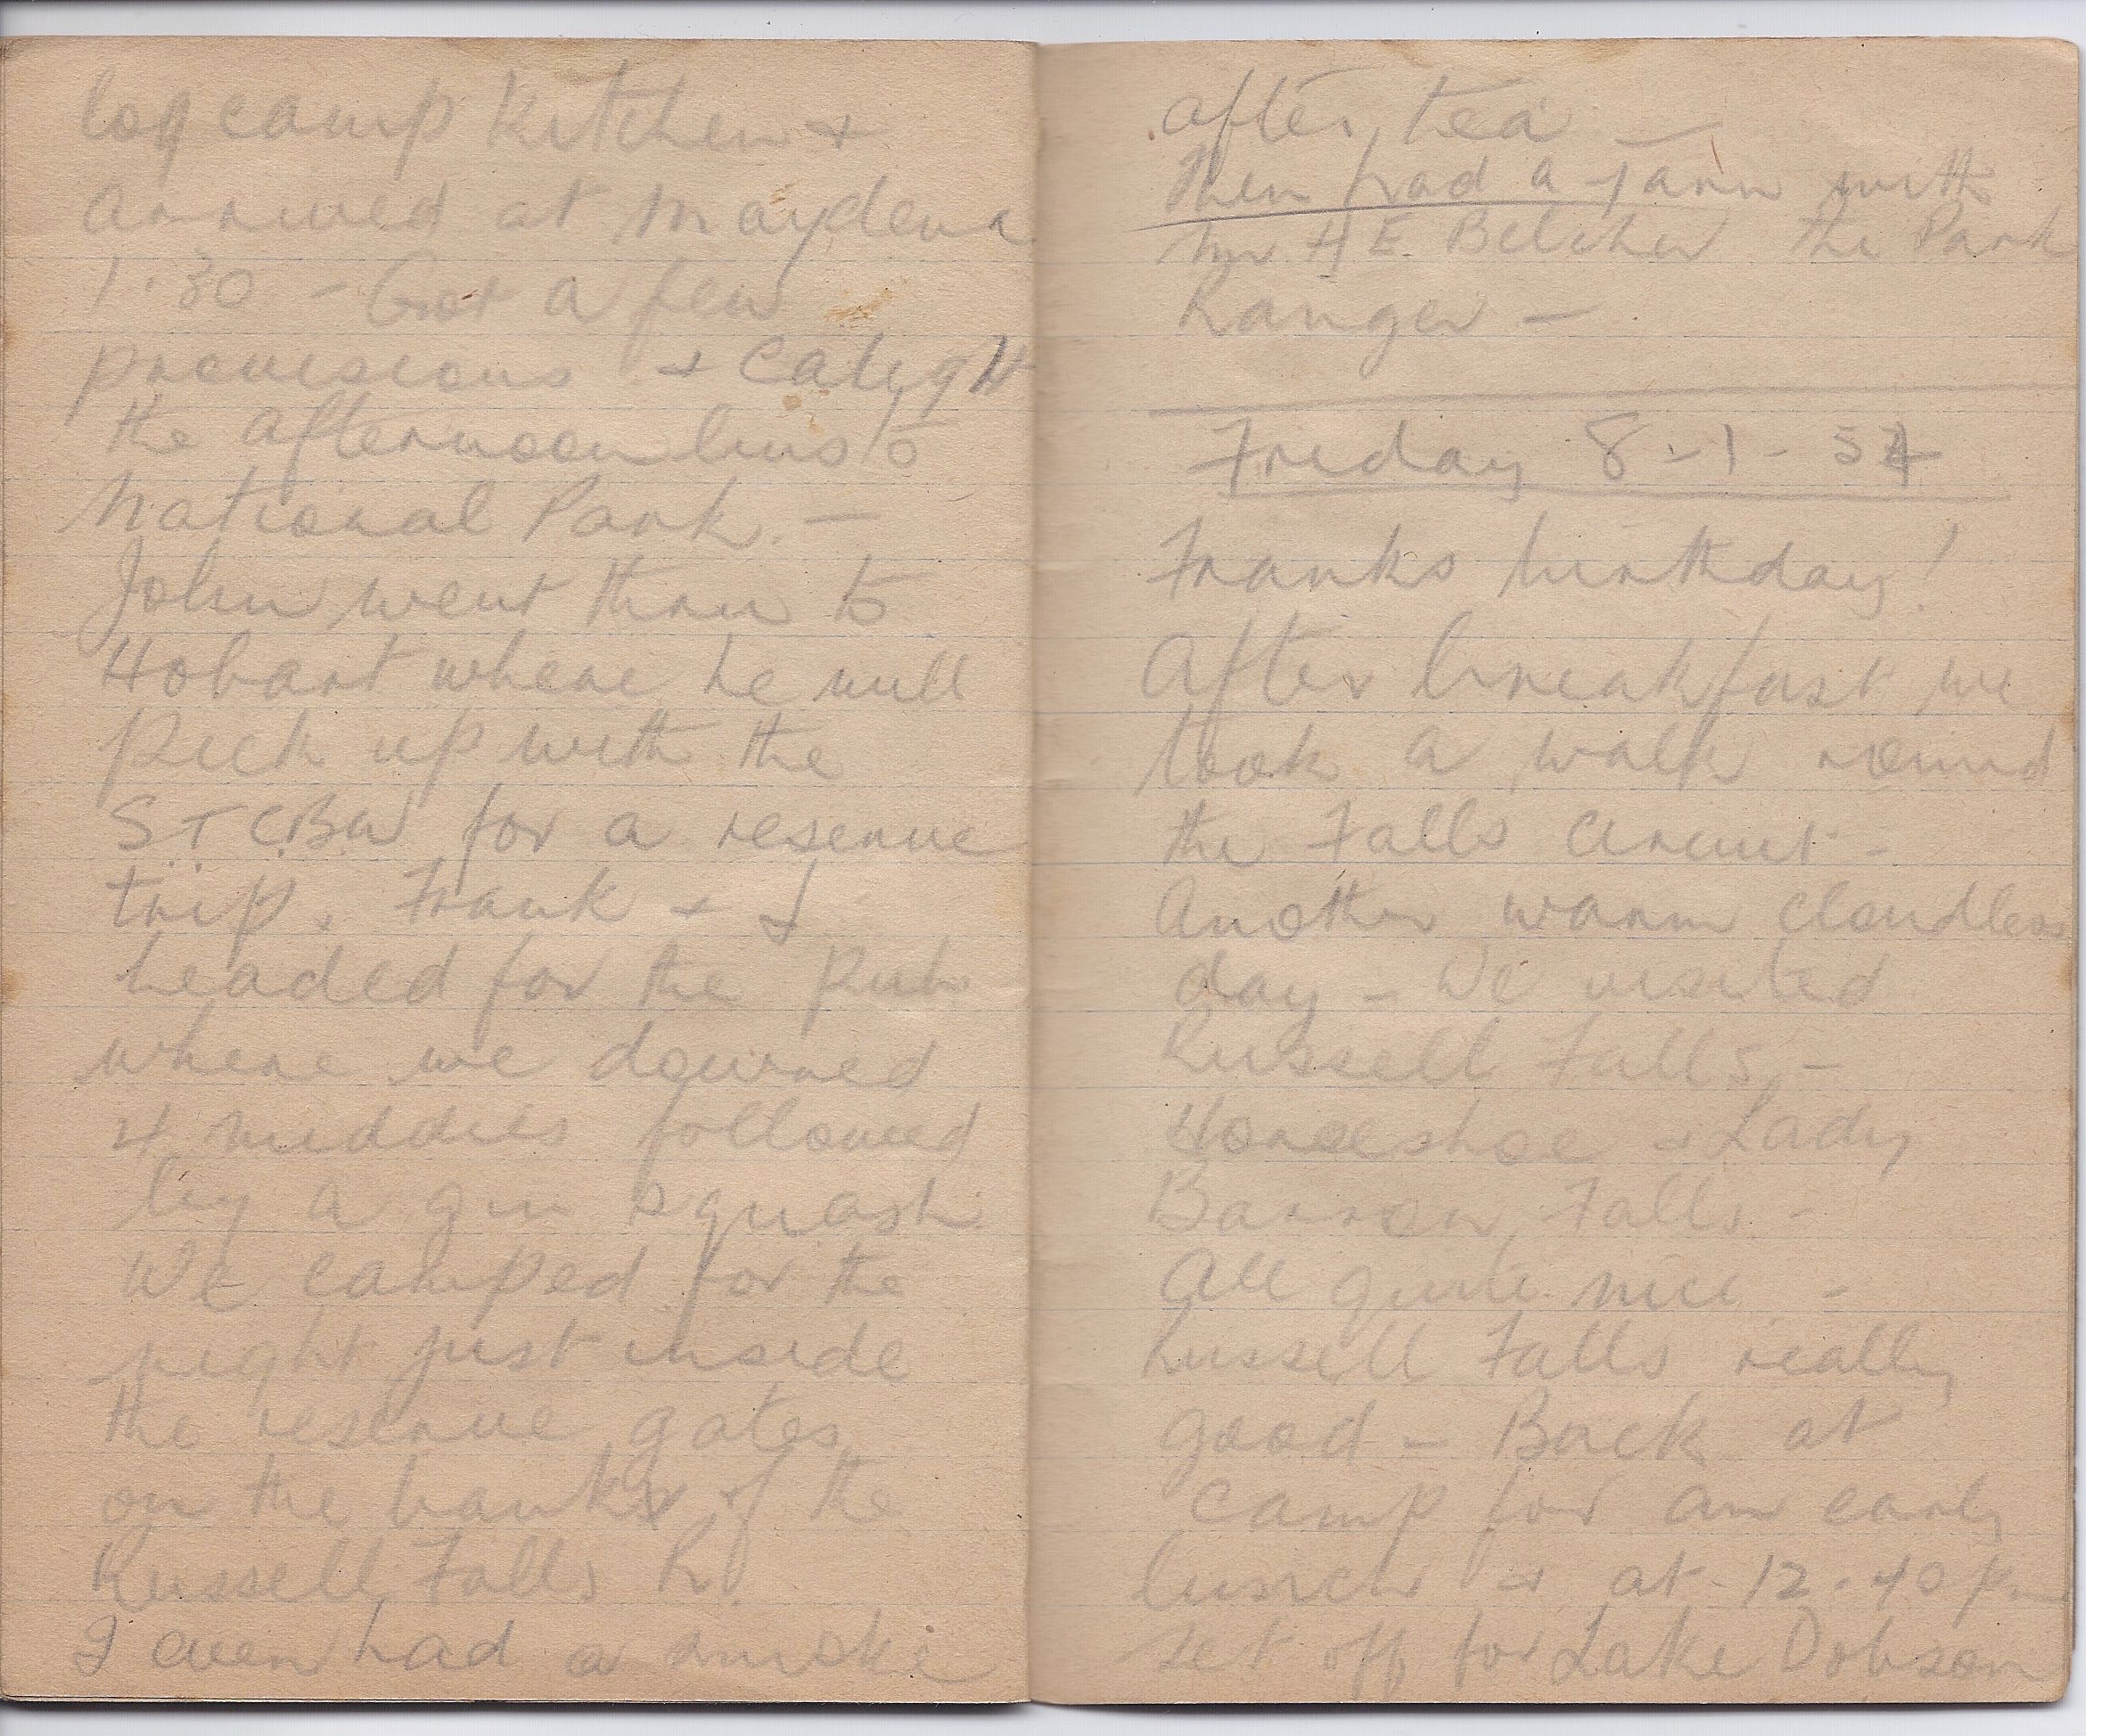 log camp kitchen &
arrived at Maydena
1.30 - Got a few
provisions & caught
the afternoon bus to
National Park. -
John went thru to
Hobart where he will
pick up with the
S.T.C.B.W for a reserve
trip. Frank & I
headed for the Pub
where we downed
4 middies followed
by a gin squash.
We camped for the
night just inside
the reserve gates
on the banks of the
Russell Falls R.
I even had a smoke
after tea -
Then had a yarn with
Mr H.E. Belcher the Park
Ranger -
Friday 8-1-54
Franks birthday!
After breakfast we
took a walk round
the Falls circuit -
Another warm cloudless
day - We visited
Russell Falls, -
Horseshoe & Lady
Barron Falls -
All quite nice -
Russell Falls really
good - Back at
camp for an early
lunch & at 12.40 pm
set off for Lake Dobson